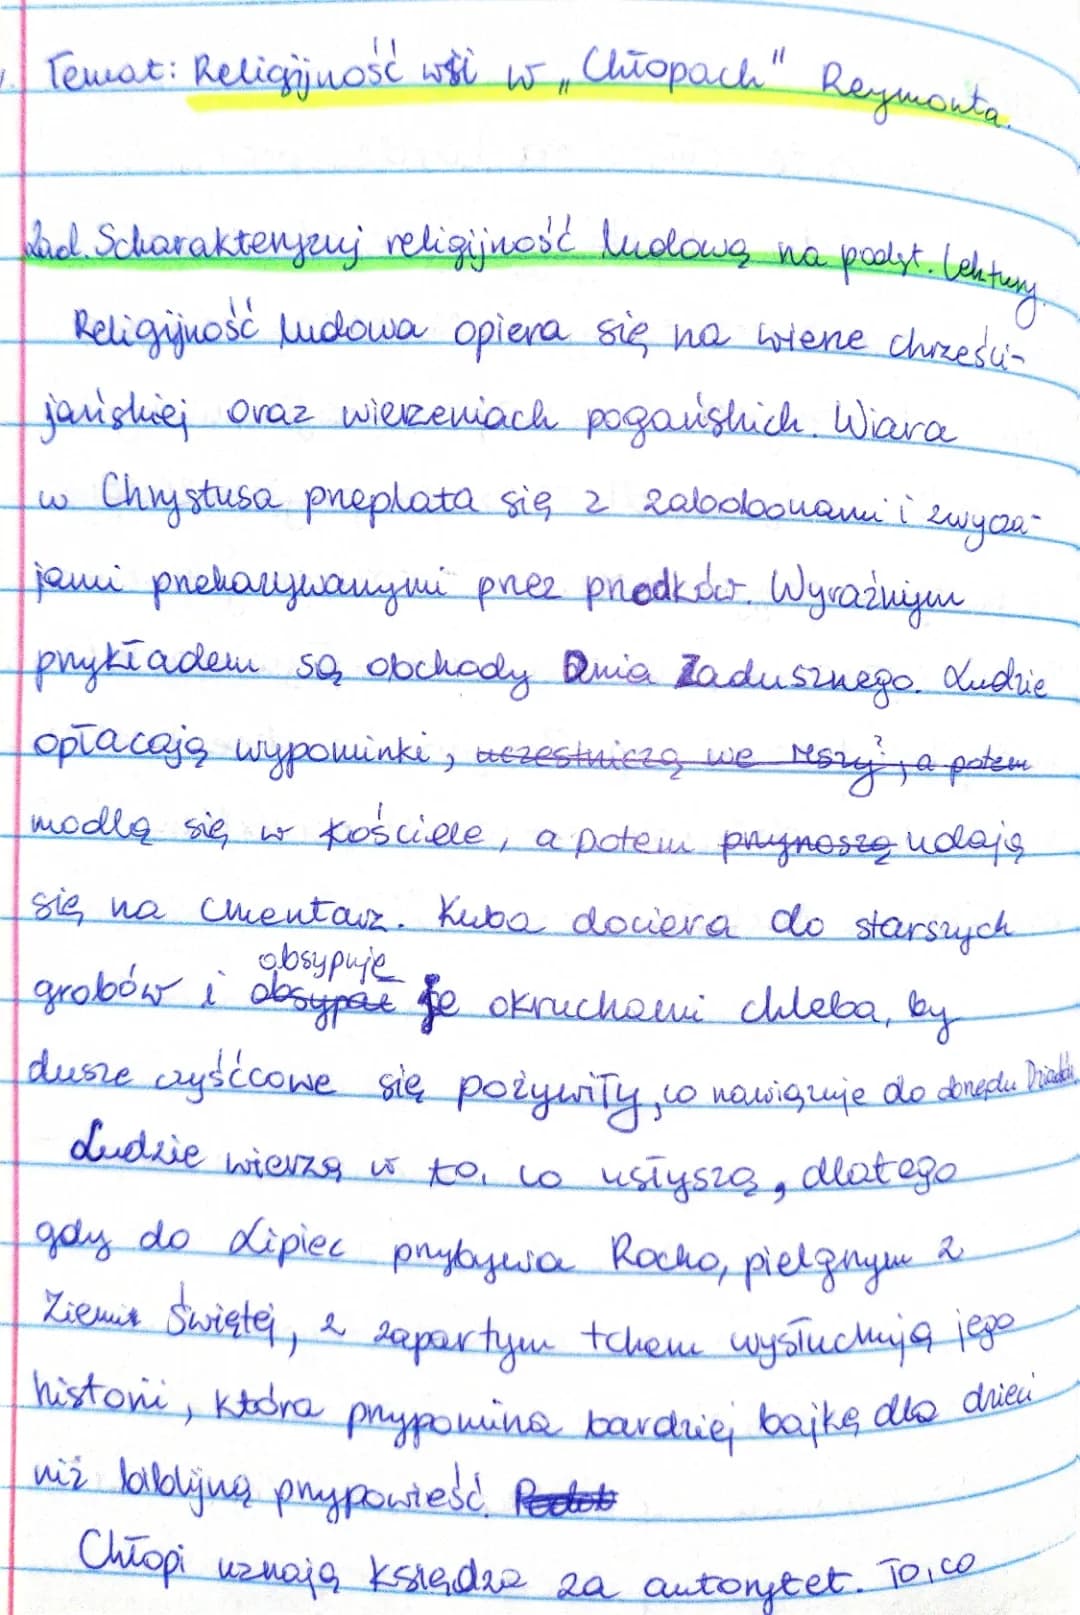 Temat: Religijność wsi w „Chłopach" Reymonta.
Zad. Scharakteryzuj religijność ludową na podst. lektury.
Religijność ludowa opiera się na wierze chrześci-
jańskiej oraz wierzeniach pogańskich. Wiara
w Chrystusa przeplata się z zabobonami i zwycza-
jami przekazywanymi przez przodków. Wyraźnym
przykładem są obchody Dnia Zadusznego. Ludzie
opłacają wypominki, uczestniczą we mszy?, a potem
modlą się w kościele, a potem przynoszą udają
się na cmentarz. Kuba dociera do starszych
obsypuje
grobów i obsypał je okruchami chleba, by
dusze czyśćcowe się pożywiły, co nawiązuje do obrzędu Dziadów.
Ludzie wierzą w to, co usłyszą, dlatego
gdy do Lipiec przybywa Rocho, pielgrzym z
Ziemi Świętej, z zapartym tchem wysłuchują jego
historii, która przypomina bardziej bajkę dla dzieci
niż biblijną przypowieść.
Chłopi uznają księdza za autorytet. To, co